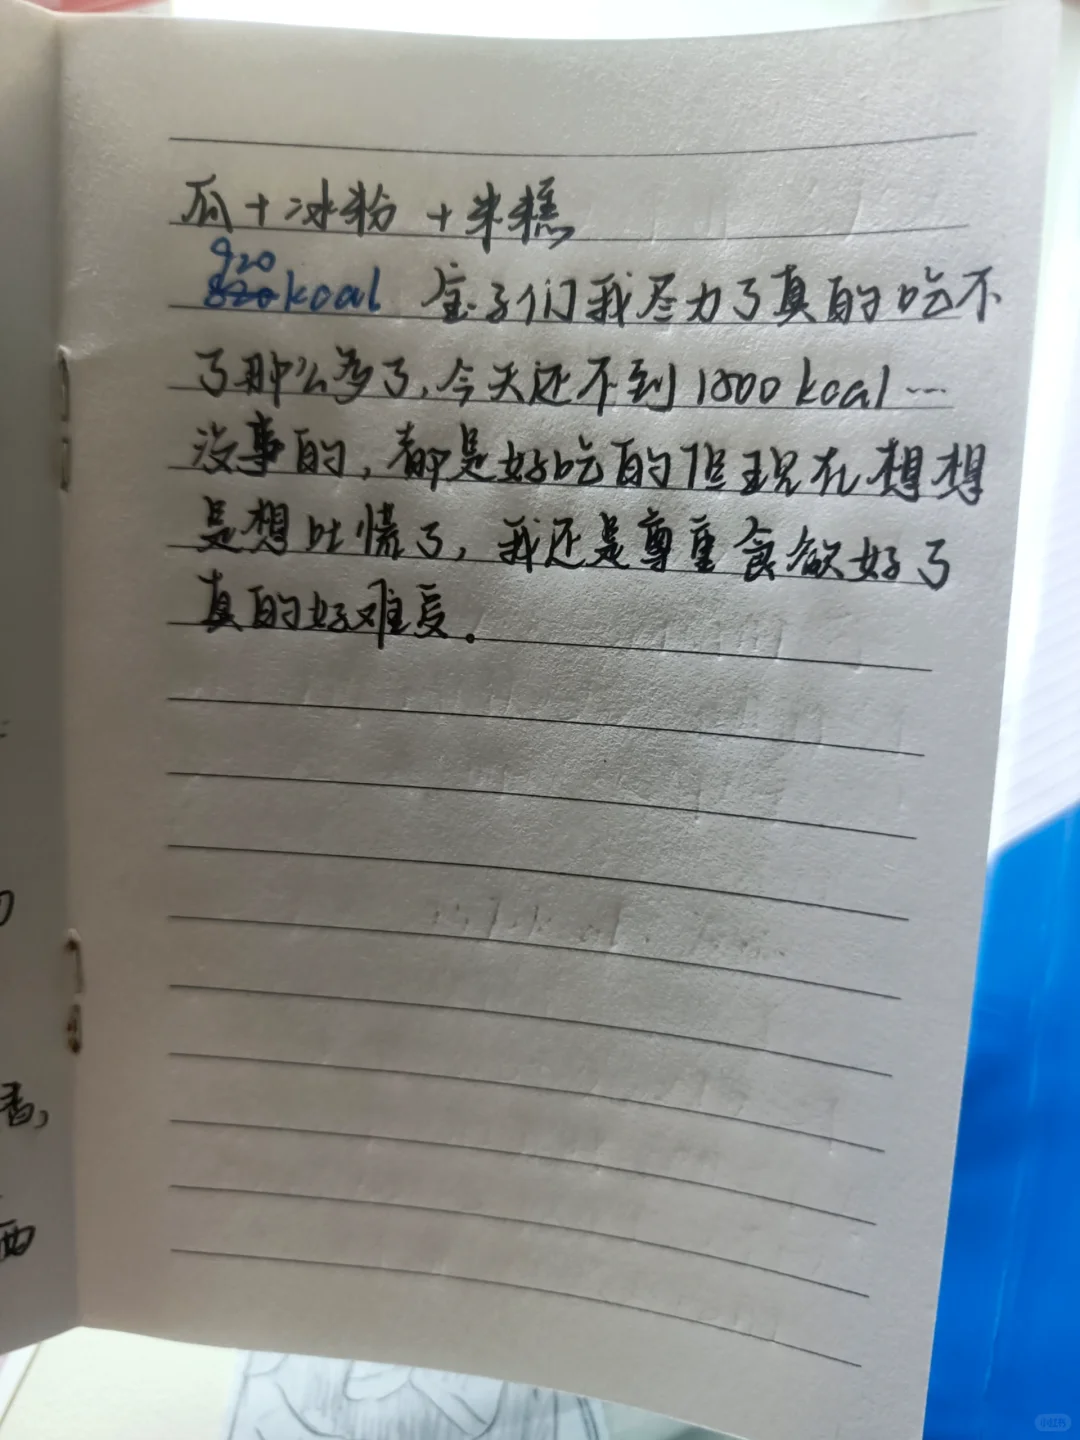 瓜+冰粉 +米糕
920
820kcal 宝子们我尽力了真的吃不
了那么多了,今天还不到1800kcal…
没事的,都是好吃的但现在想想
是想吐慌了,我还是尊重食欲好了
真的好难受。
香,
西
小红书